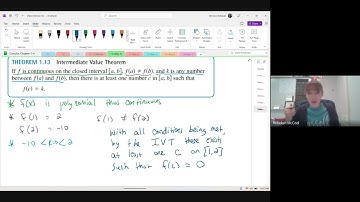 THEOREM 1.13 Intermediate Value Theorem
If f is continuous on the closed interval [a, b], f(a) ≠ f(b), and k is any number
between f(a) and f(b), then there is at least one number c in [a, b] such that
f(c) = k.
* f(x) is polynomial thus continuous
* f(1) = 2 f(1) ≠ f(2)
f(2) = -10
* -10 < k=0 < 2
With all conditions being met,
by the IVT there exists
at least one c on [1,2]
such that f(c) = 0